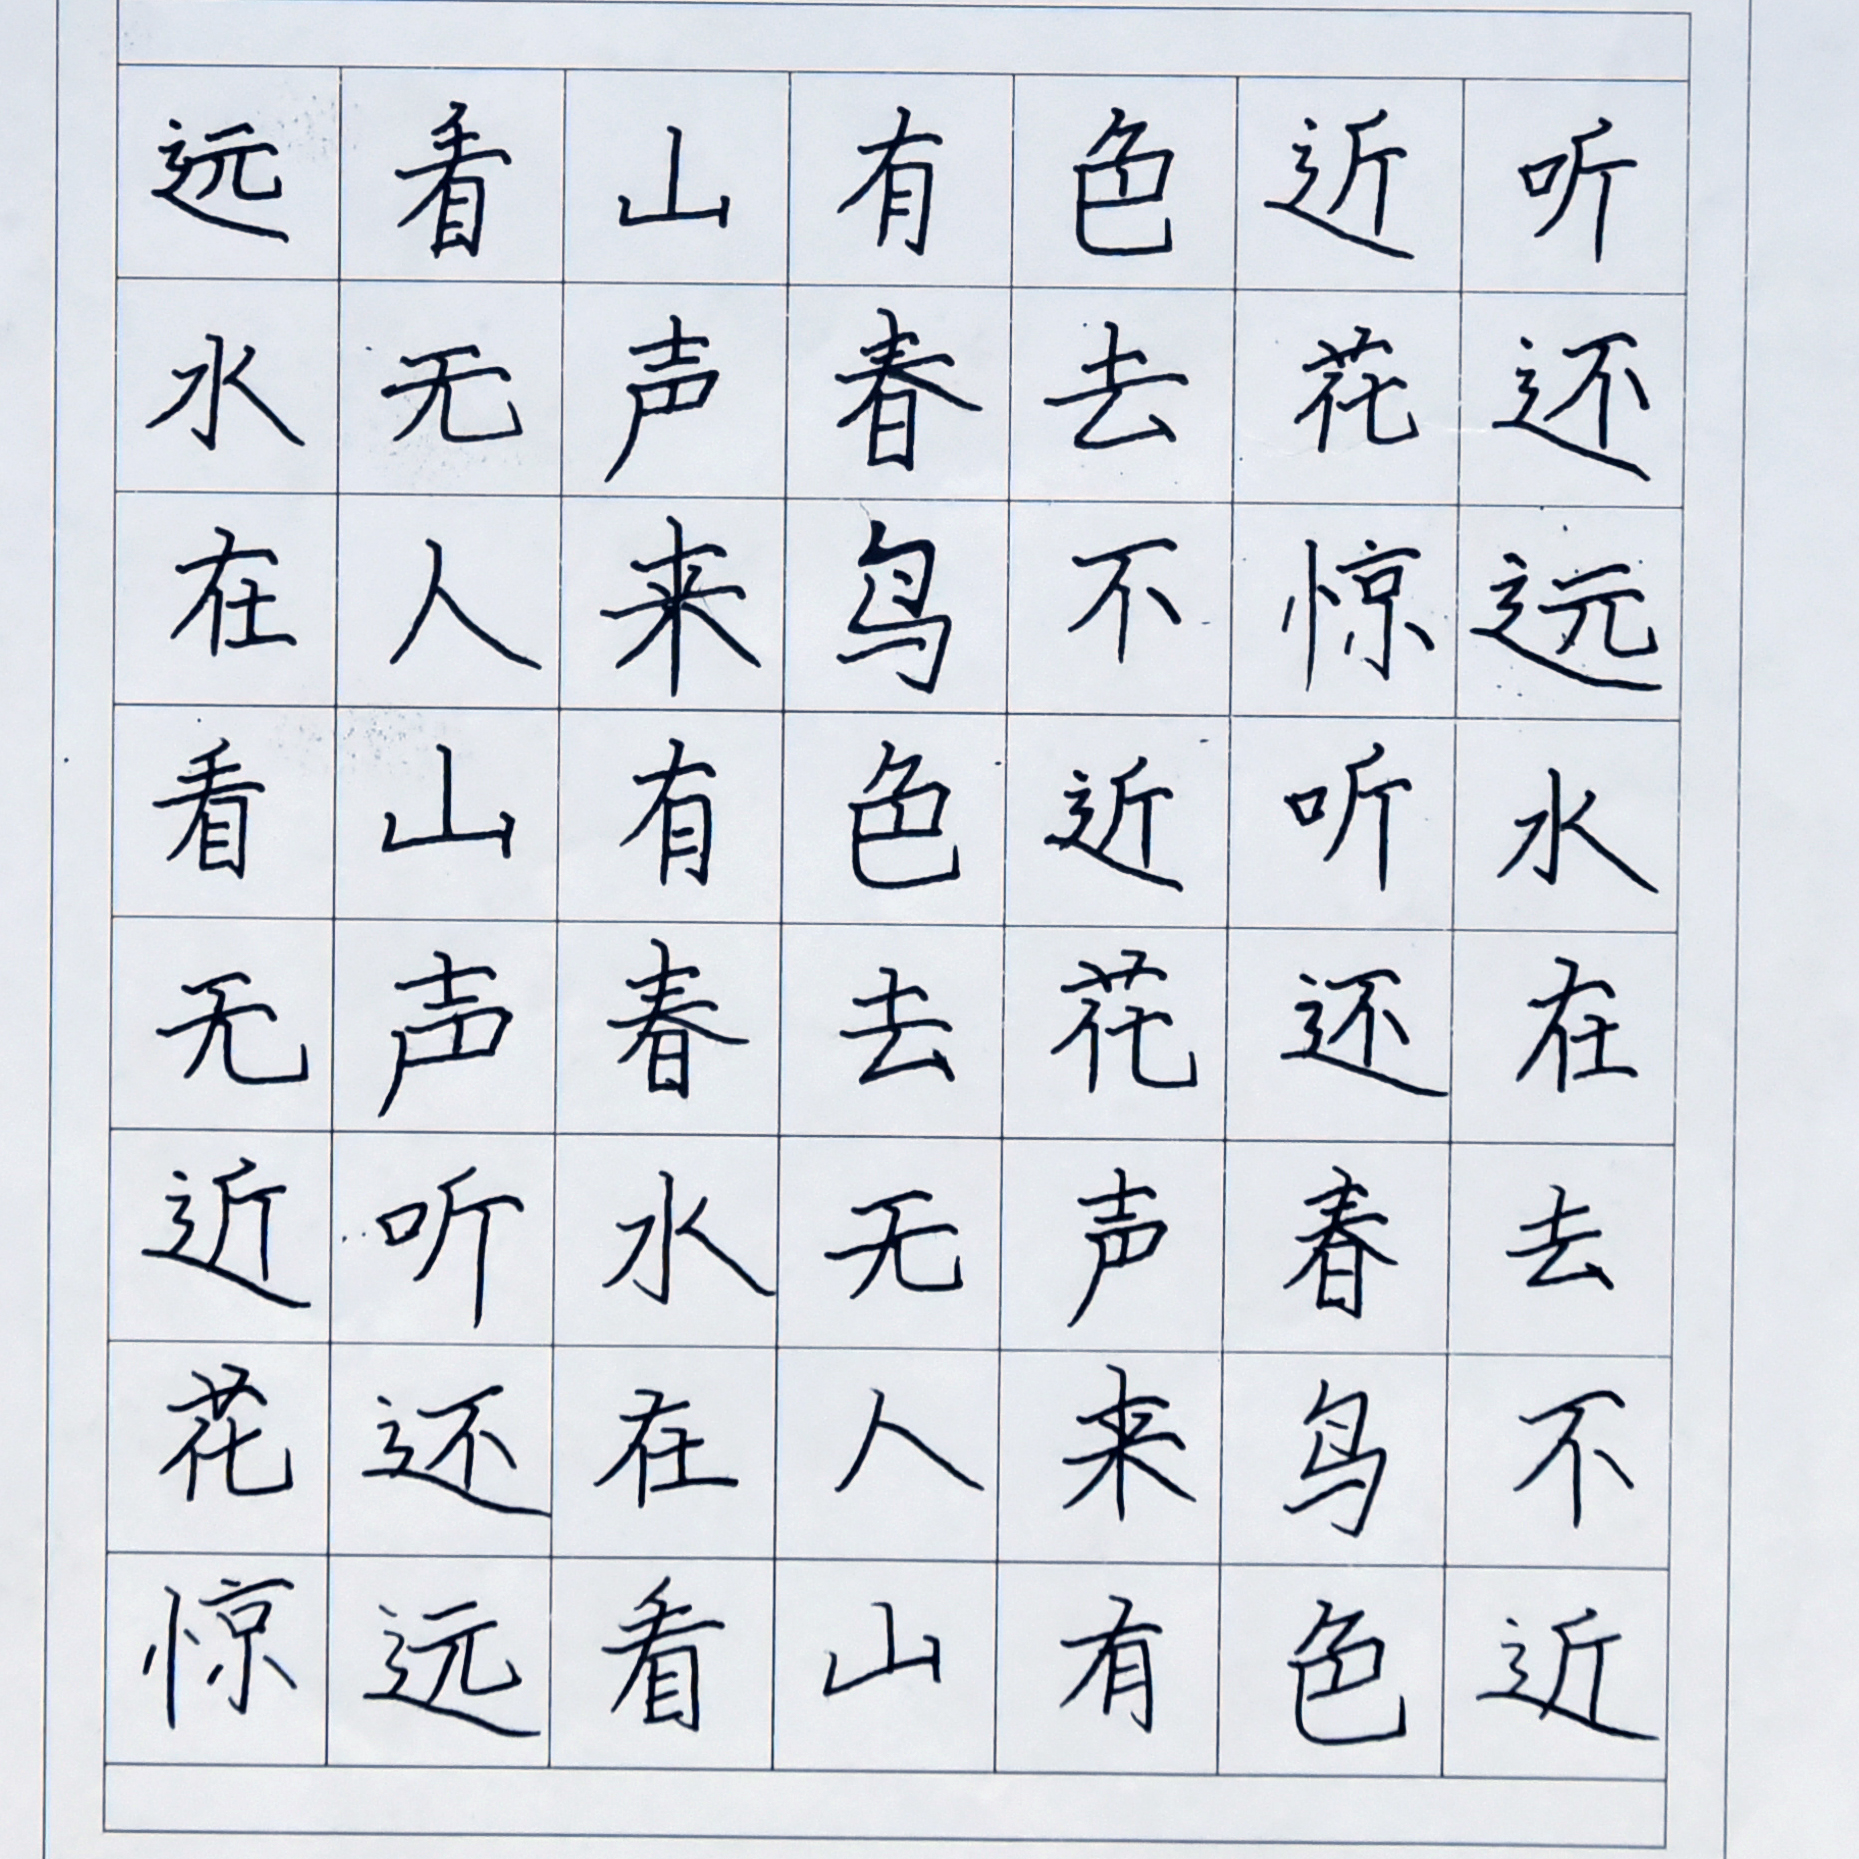 远看山有色近听
水无声春去花还
在人来鸟不惊远
看山有色近听水
无声春去花还在
近听水无声春去
花还在人来鸟不
惊远看山有色近